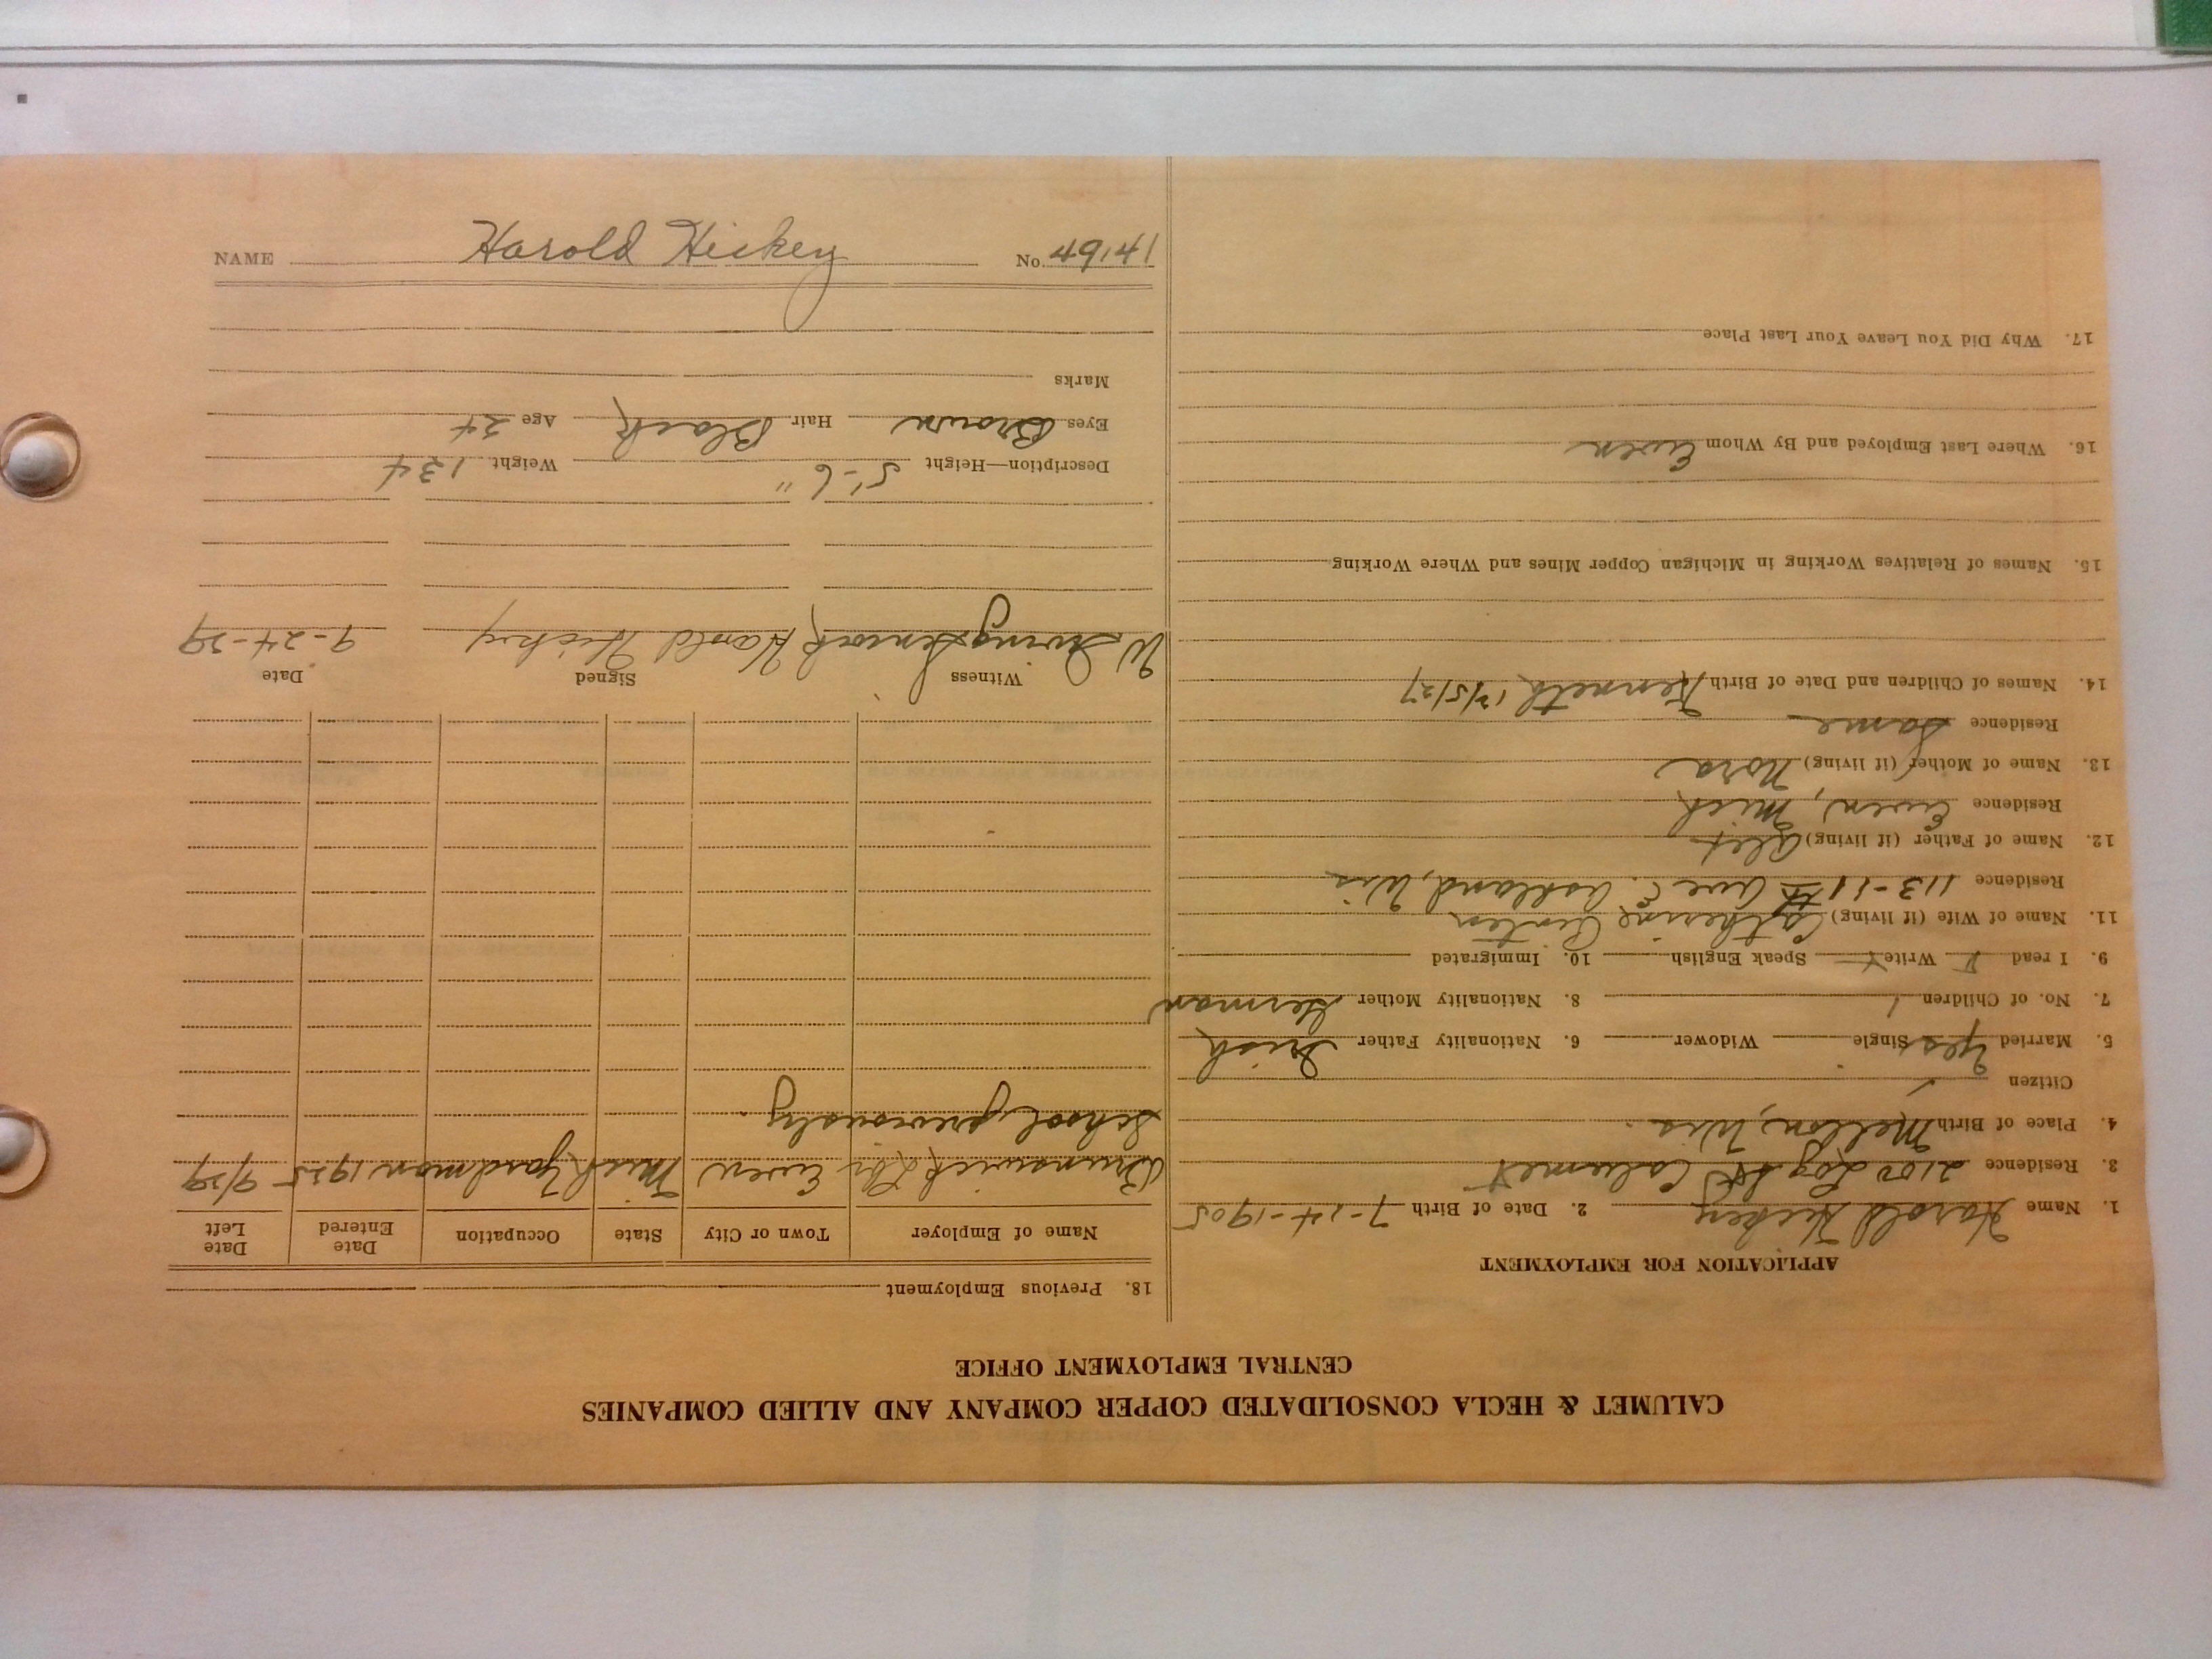 CALUMET & HECLA CONSOLIDATED COPPER COMPANY AND ALLIED COMPANIES
CENTRAL EMPLOYMENT OFFICE
APPLICATION FOR EMPLOYMENT
1. Name Harold Hickey 2. Date of Birth 7-24-1905
3. Residence 2100 Log St Calumet
4. Place of Birth Mellon, Wis.
Citizen ✓
5. Married Yes Single Widower 6. Nationality Father Irish
7. No. of Children 1 8. Nationality Mother German
9. I read Write Speak English 10. Immigrated
11. Name of Wife (if living) Catherine
Residence 113-11th Ave E. Ashland, Wis
12. Name of Father (if living) Alex
Residence Ewen, Mich
13. Name of Mother (if living) Nora
Residence Same
14. Names of Children and Date of Birth Kenneth 12/5/27
15. Names of Relatives Working in Michigan Copper Mines and Where Working
16. Where Last Employed and By Whom Ewen
17. Why Did You Leave Your Last Place
18. Previous Employment
Name of Employer Town or City State Occupation Date Entered Date Left
Brunswick Lbr Ewen Mich Yardman 1925 9/29
School previously.
Witness Signed Date
W. Irving Harold Hickey 9-24-29
Description—Height 5'-6" Weight 134
Eyes Brown Hair Black Age 24
Marks
NAME Harold Hickey No. 49141